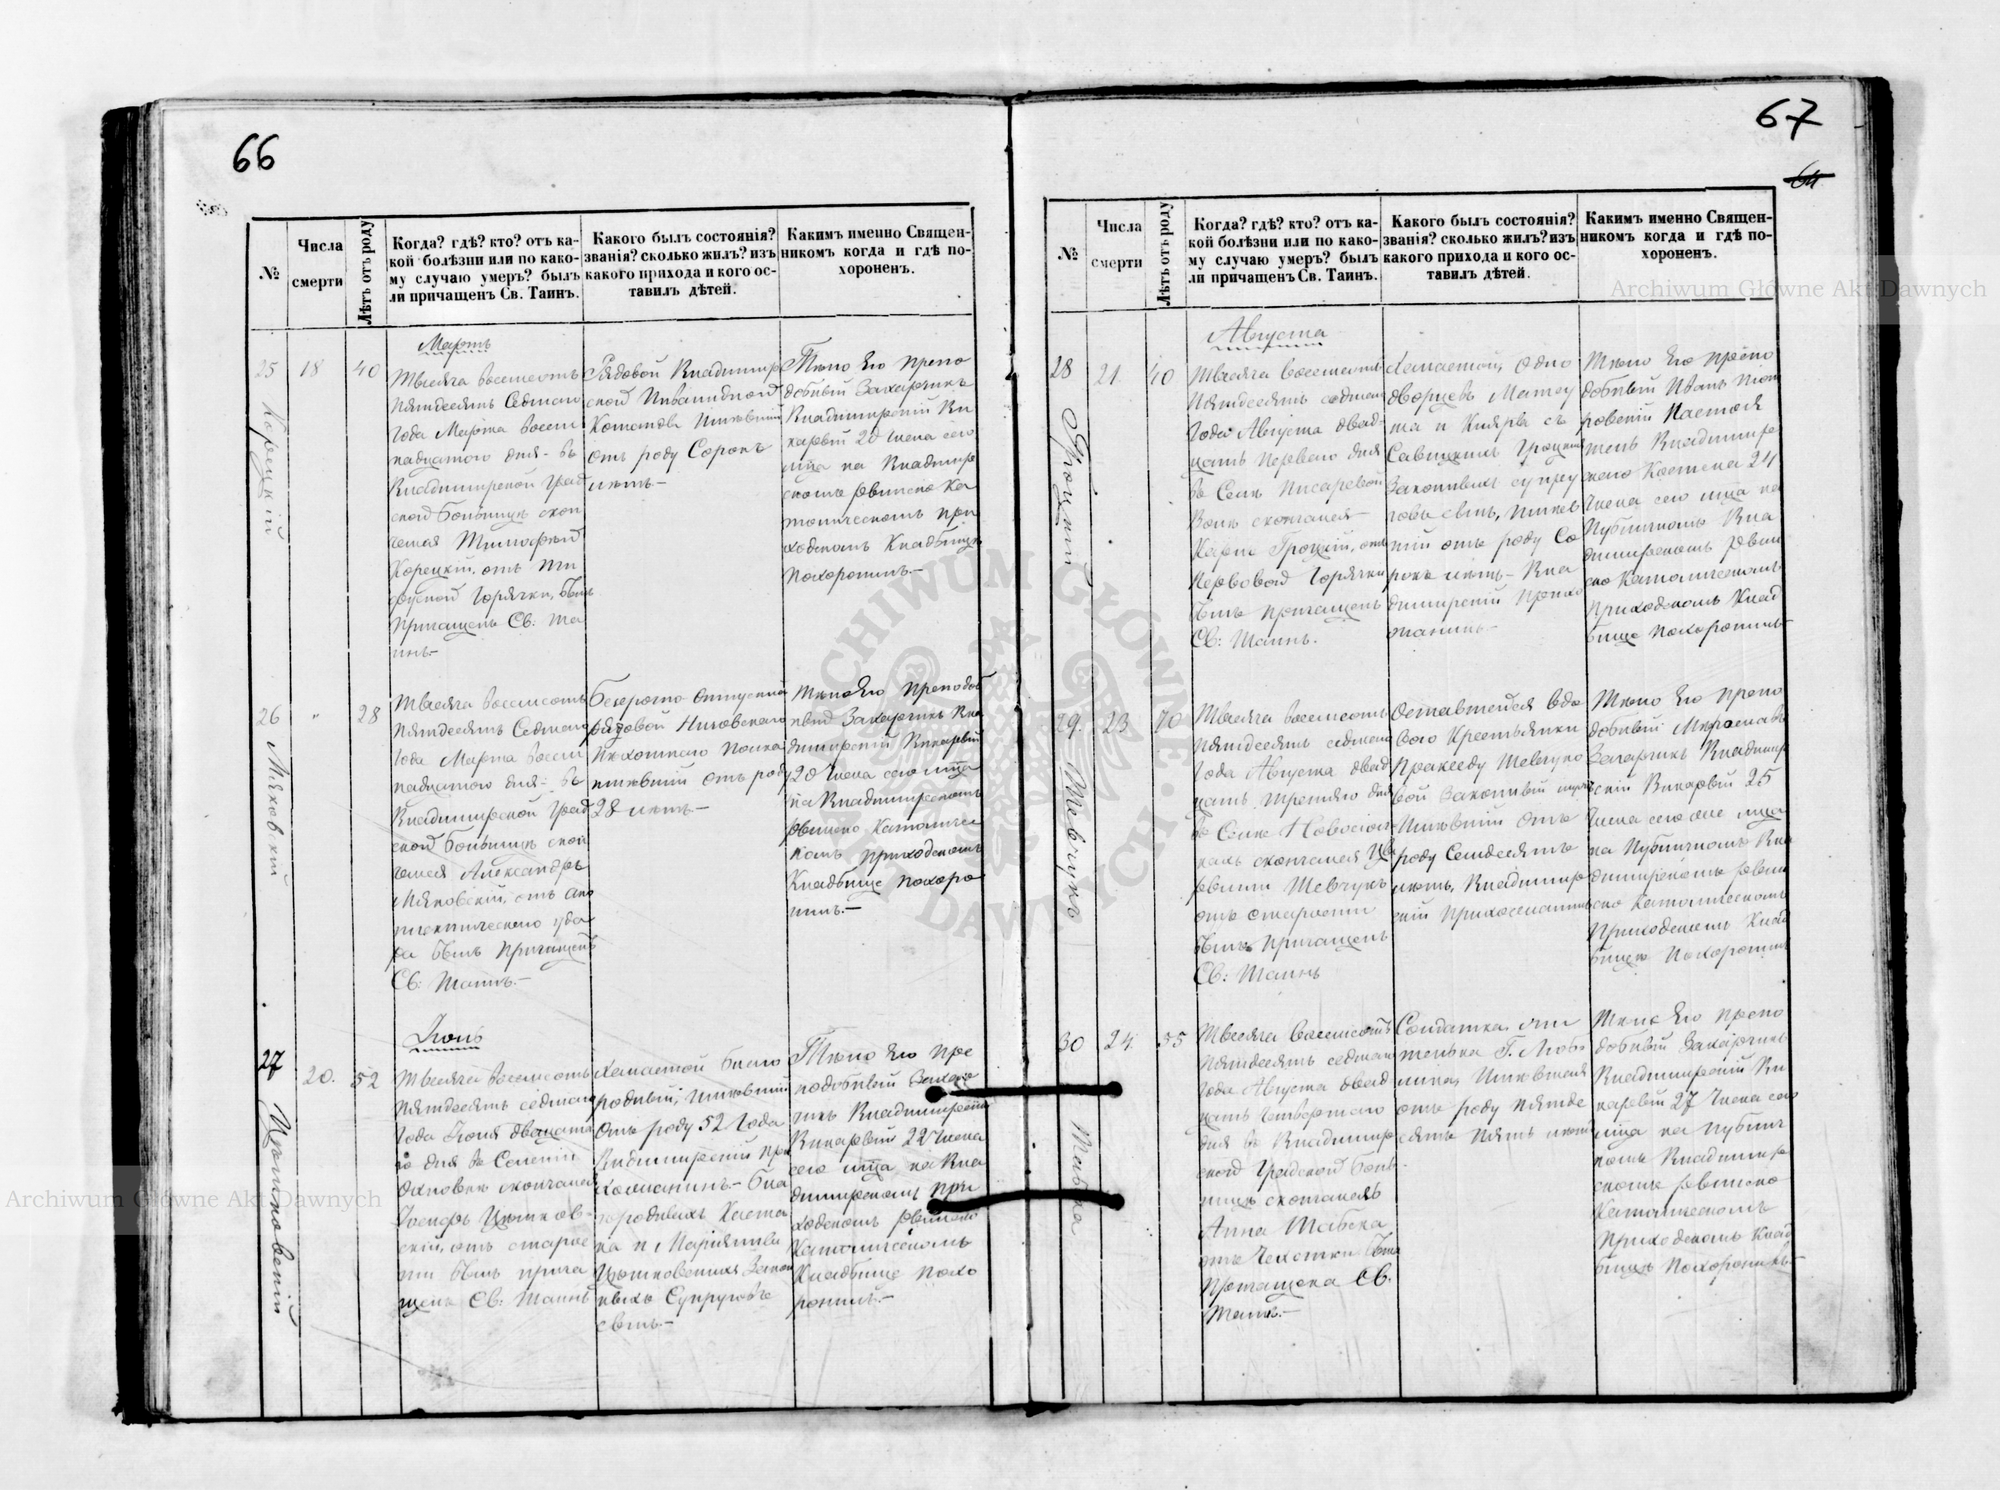 66
№
Числа
смерти
Лѣтъ отъ роду
Когда? гдѣ? кто? отъ ка-
кой болѣзни или по како-
му случаю умеръ? былъ
ли причащенъ Св. Таинъ.
Какого былъ состоянія?
званія? сколько жилъ? изъ
какого прихода и кого ос-
тавилъ дѣтей.
Какимъ именно Священ-
никомъ когда и гдѣ по-
хороненъ.
Мартъ
25
Корецкій
18
40
Тысяча восемсотъ
пятдесятъ седмаго
года Марта восем
надцатого дня - въ
Владимирской град
ской больницѣ скон
чался Тимофей
Корецкій, отъ ти
фусной горячки, былъ
причащенъ Св: Та
инъ.-
Рядовой Владимир
ской Инвалидной
Команды имѣвшій
отъ роду сорокъ
лѣтъ.-
Тѣло его препо
добный Захаржикъ
Владимирскій Ви
карый 20 числа сего
мца на Владимир
скомъ Римско Ка
толическомъ при
ходскомъ кладбищѣ
похоронилъ.-
26
Мяковскій
"
28
Тысяча восемсотъ
пятдесятъ седмаго
года Марта восем
надцатого дня - въ
Владимирской град
ской больницѣ скон
чался Александръ
Мяковскій, отъ апо
плектическаго уда
ра былъ причащенъ
Св: Таинъ.-
Безсрочно отпускной
рядовой Низовского
пехотнаго полка
имѣвшій отъ роду
28 лѣтъ.-
Тѣло его преподоб
ный Захаржикъ Вла
димирскій Викарый
20 числа сего мца
на Владимирскомъ
Римско Католичес
комъ приходскомъ
кладбище похоро
нилъ.-
Іюнь
27
Цѣшковскій
20.
52
Тысяча восемсотъ
пятдесятъ седмаго
года Іюня двадцата
го дня въ селеніи
скончался
Іосифъ Цѣшков-
скій, отъ старос
ти былъ прича
щенъ Св: Таинъ
Холостой благо
родный, имѣвшій
отъ роду 52 года
Владимирскій при
хожанинъ.- Бла
городныхъ Каета
на и Маріянны
Цѣшковскихъ закон
ныхъ супруговъ
сынъ.-
Тѣло его пре
подобный Захар
жикъ Владимирскій
Викарый 22 числа
сего мца, на Вла
димирскомъ при
ходскомъ Римско
Католическомъ
кладбище похо
ронилъ.-
67
64
№
Числа
смерти
Лѣтъ отъ роду
Когда? гдѣ? кто? отъ ка-
кой болѣзни или по како-
му случаю умеръ? былъ
ли причащенъ Св. Таинъ.
Какого былъ состоянія?
званія? сколько жилъ? изъ
какого прихода и кого ос-
тавилъ дѣтей.
Какимъ именно Священ-
никомъ когда и гдѣ по-
хороненъ.
Августа
28
Гроцкій
21
40
Тысяча восемсотъ
пятдесятъ седмаго
года Августа двад
цать перваго дня
въ селѣ Писаревой
Волѣ скончался
Гроцкій, отъ
нервовой горячки
былъ причащенъ
Св: Таинъ.
Холостой, одно
дворцевъ Матеу
ша и съ
Савицкихъ Гроцкихъ
законныхъ супру
говъ сынъ, имѣв
шій отъ роду со
рокъ лѣтъ - Вла
димирскій прихо
жанинъ.-
Тѣло его препо
добный Иванъ Піот
ровскій Настоя
тель Владимир
скаго Костела 24
числа сего мца на
публичномъ Вла
димирскомъ Римс
ко Католическомъ
приходскомъ клад
бище похоронилъ.-
29.
Шевчукъ
23
70
Тысяча восемсотъ
пятдесятъ седмаго
года Августа двад
цать третяго дня
въ селѣ Новосіол
кахъ скончался
Шевчукъ
отъ старости
былъ причащенъ
Св: Таинъ
Оставшейся вдо
вою крестьянки
Шевчуко
вой законный мужъ
имѣвшій отъ
роду семдесятъ
лѣтъ, Владимир
скій прихожанинъ
Тѣло его препо
добный
Захаржикъ Владимир
скій Викарый 25
числа сего мца
на публичномъ Вла
димирскомъ Римс
ко Католическомъ
приходскомъ клад
бище похоронилъ
30
Табака
24.
55
Тысяча восемсотъ
пятдесятъ седмаго
года Августа двад
цать четвертаго
дня въ Владимир
ской градской боль
ницѣ скончалась
Анна Табака
отъ чахотки была
причащена Св.
Таинъ.-
Солдатка, жи
телька Г. Любо
мля, имѣвшая
отъ роду пятде
сятъ пять лѣтъ
Тѣло его препо
добный Захаржикъ
Владимирскій Ви
карый 27 числа сего
мца на публич
номъ Владимир
скомъ Римско
Католическомъ
приходскомъ клад
бище похоронилъ.-
Archiwum Główne Akt Dawnych
Archiwum Główne Akt Dawnych
ARCHIWUM GŁÓWNE AKT DAWNYCH